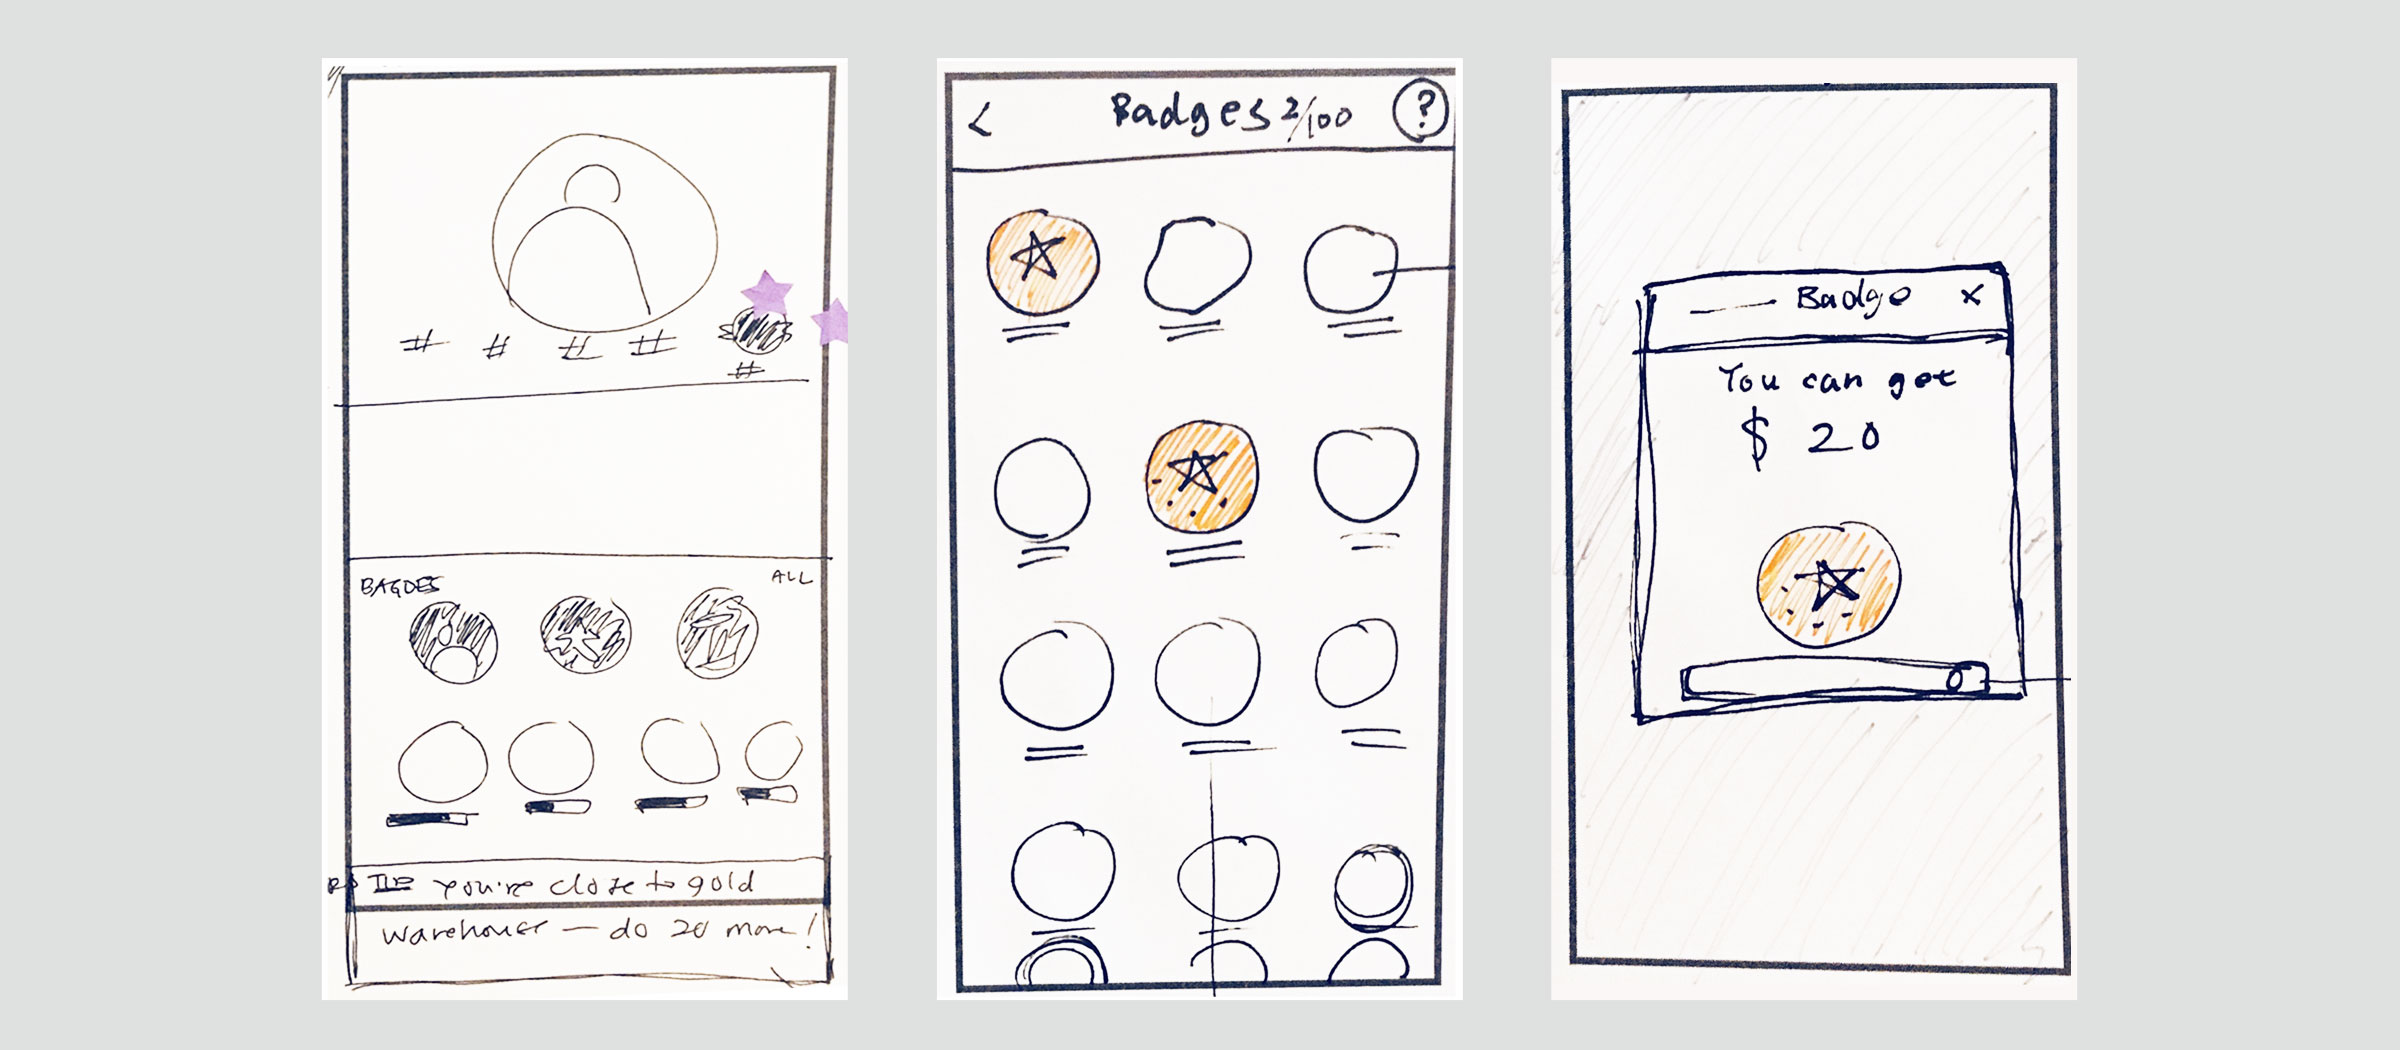 # # # # #
BAGDES ALL
you're close to gold
warehouser — do 20 more!
< Badges 2/100 ?
Badge ×
You can get
$ 20